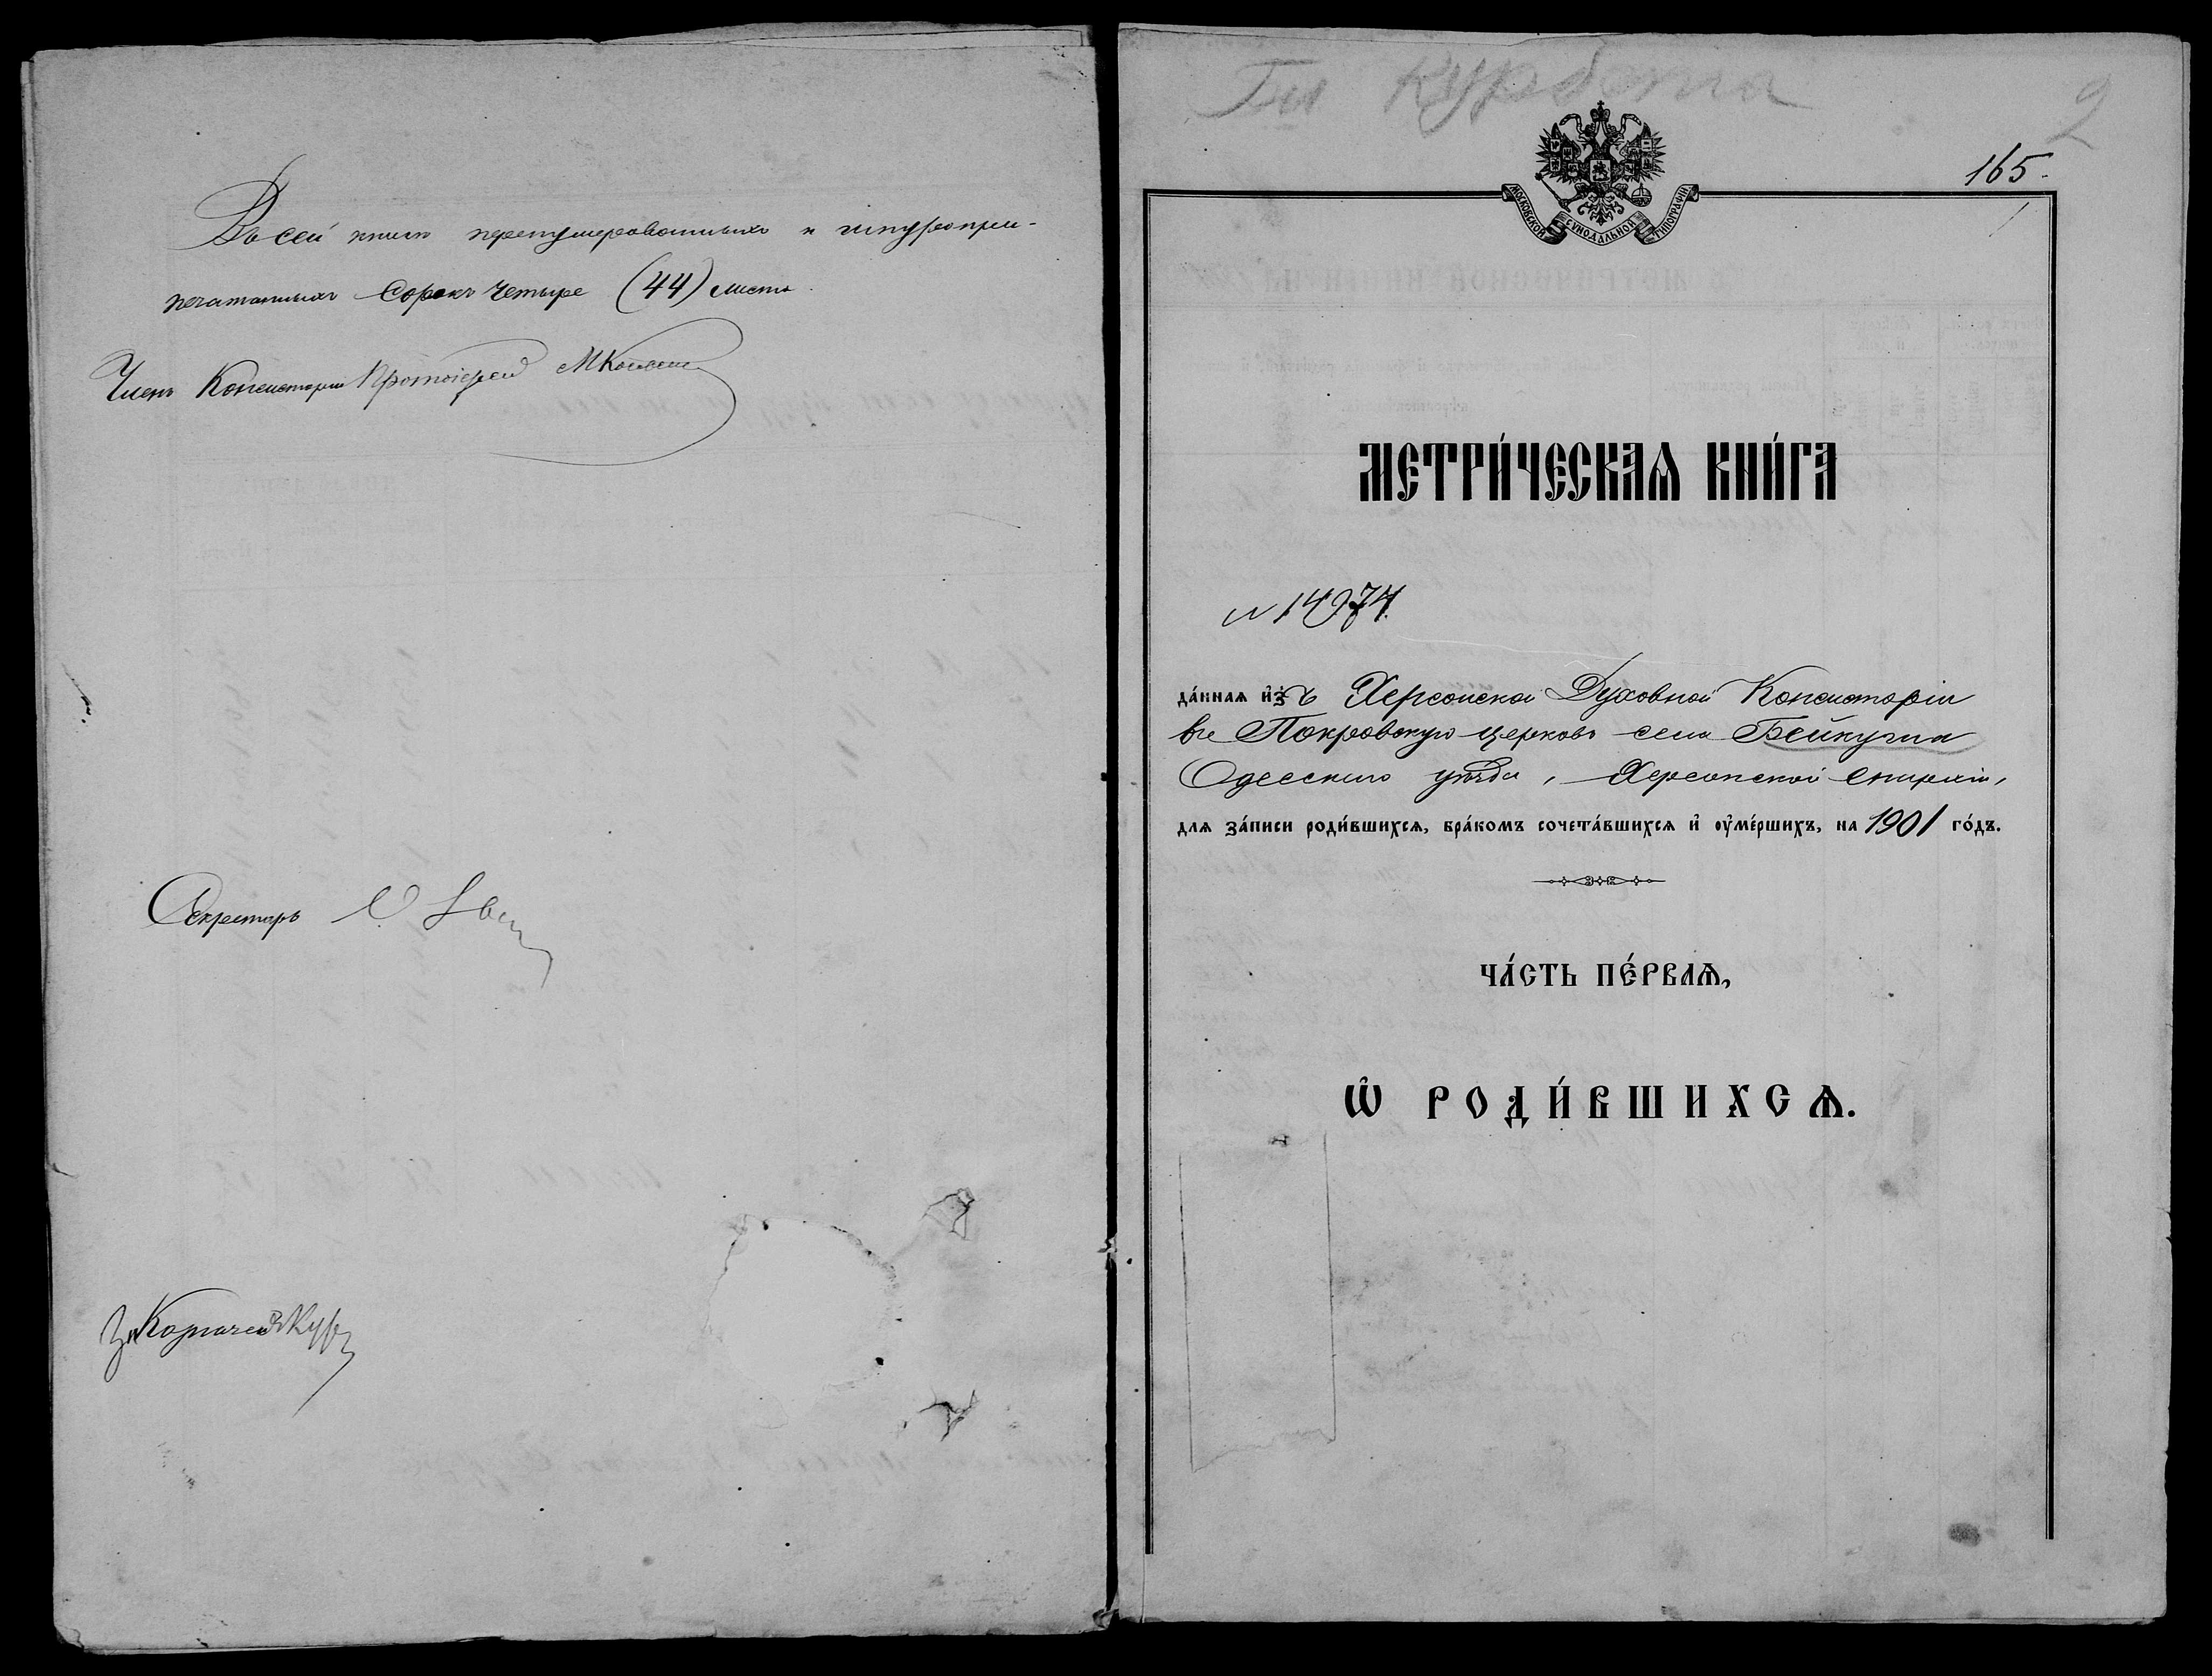 Въ сей книге перенумерованныхъ и шнуропри-
печатанныхъ сорокъ четыре (44) листа.
Членъ Консисторіи Протоіерей
Секретарь
Казначей
2
165.
МОСКОВСКОЙ СѴНОДАЛЬНОЙ ТИПОГРАФІИ
МЕТРИ́ЧЕСКАѦ КНИ́ГА
№ 14974.
да́ннаѧ и҆зъ Херсонской Духовной Консисторіи
въ Покровскую церковь села Бейкуша
Одесскаго уѣзда, Херсонской епархіи,
длѧ за́писи роди́вшихсѧ, бра́комъ сочета́вшихсѧ и҆ ᲂу҆ме́ршихъ, на 1901 го́дъ.
ЧА́СТЬ ПЕ́РВАѦ,
Ѡ҆ РОДИ́ВШИХСѦ.